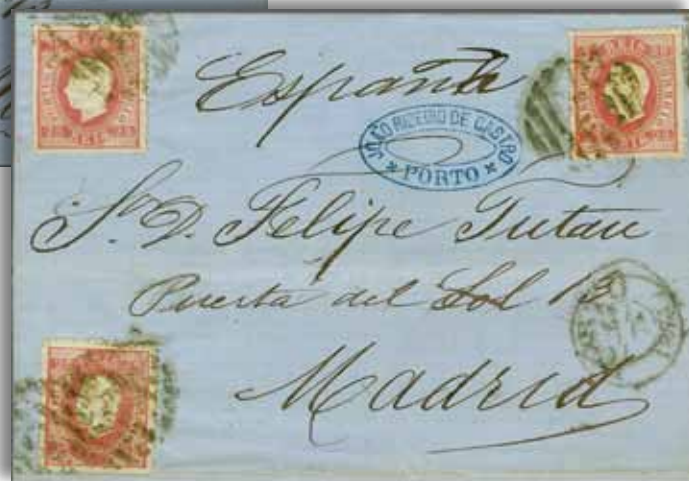 España
JOÃO RIBEIRO DE CASTRO
* PORTO *
Sr. D. Felipe Tutau
Puerta del Sol 13
Madrid